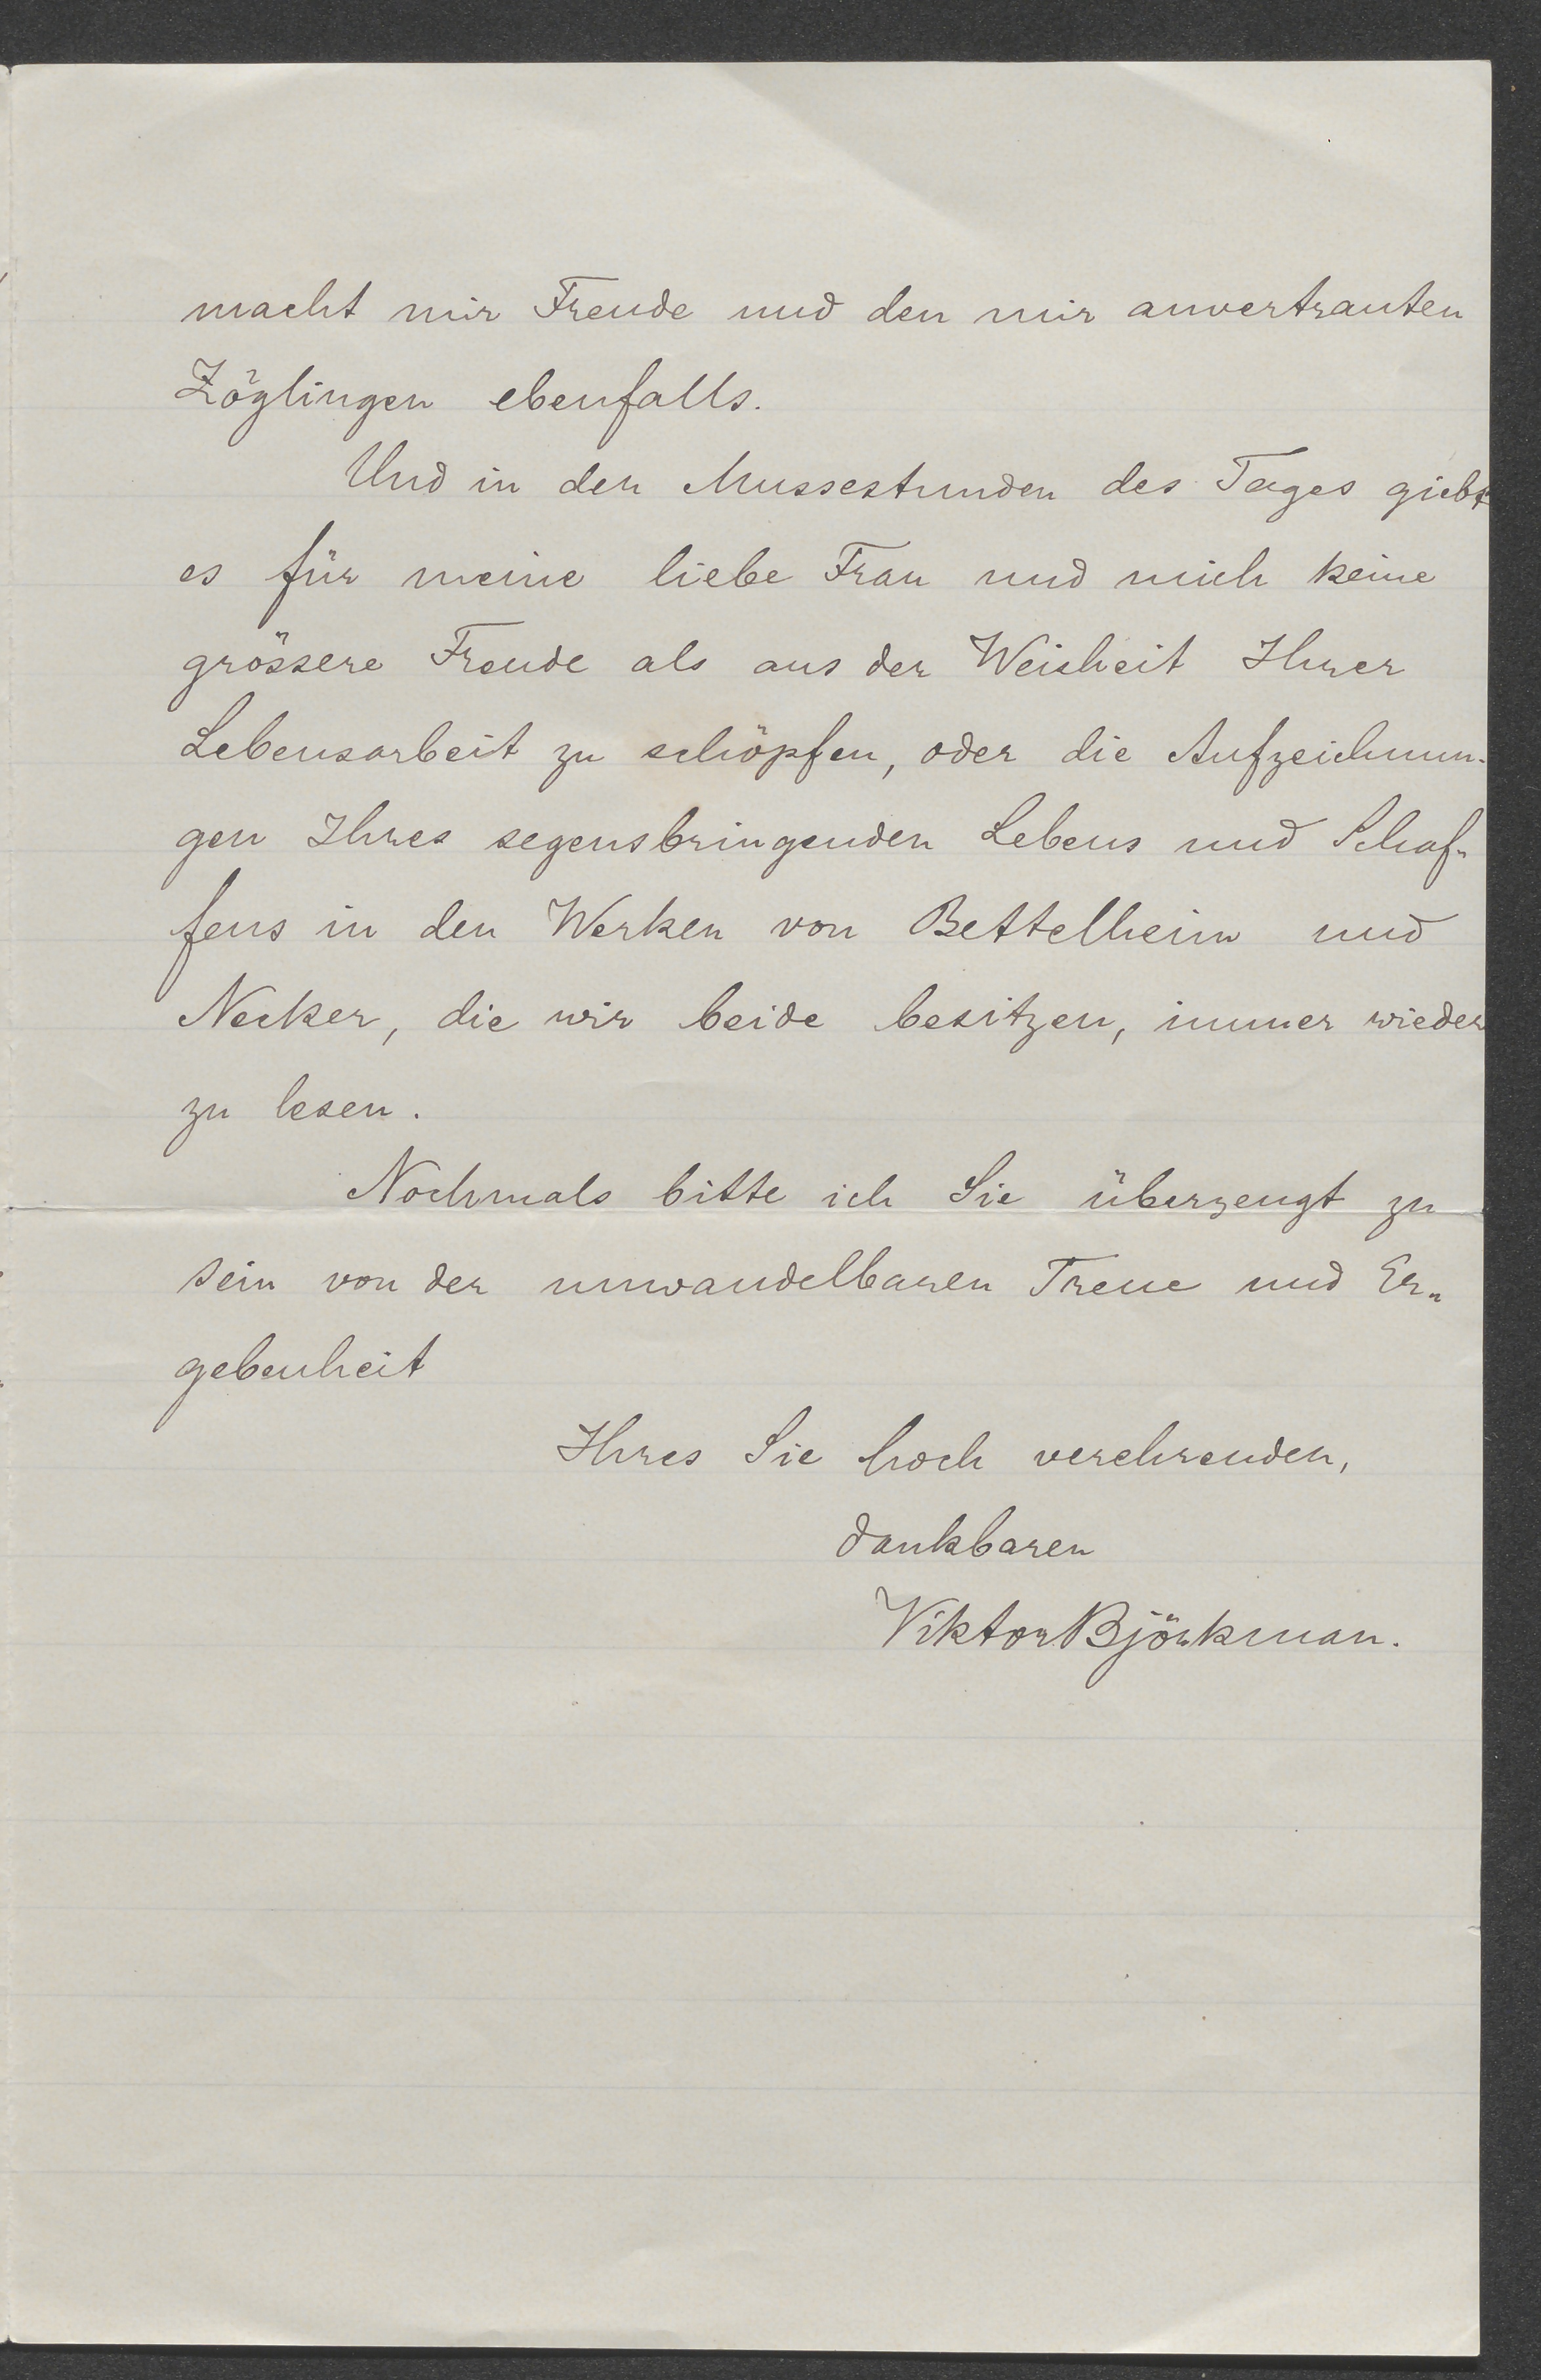 macht mir Freude und den mir anvertrauten
Zöglingen ebenfalls.
Und in den Mussestunden des Tages giebt
es für meine liebe Frau und mich keine
grössere Freude als aus der Weisheit Ihrer
Lebensarbeit zu schöpfen, oder die Aufzeichnun-
gen Ihres segensbringenden Lebens und Schaf-
fens in den Werken von Bettelheim und
Necker, die wir beide besitzen, immer wieder
zu lesen.
Nochmals bitte ich Sie überzeugt zu
sein von der unwandelbaren Treue und Er-
gebenheit
Ihres Sie hoch verehrenden,
dankbaren
Viktor Björkman.